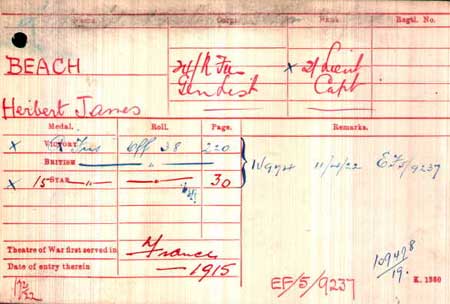 Name. Corps. Rank. Regtl. No.
BEACH 24/R Fus x 2/Lieut
Gen List Capt
Herbert James
Medal. Roll. Page. Remarks.
x VICTORY R Fus Off 38 220
BRITISH — " — — " —
x 15 STAR — " — — " — 30
11/4/22 EF5/9237
Theatre of War first served in France
Date of entry therein — 1915
EF/5/9237
K. 1380